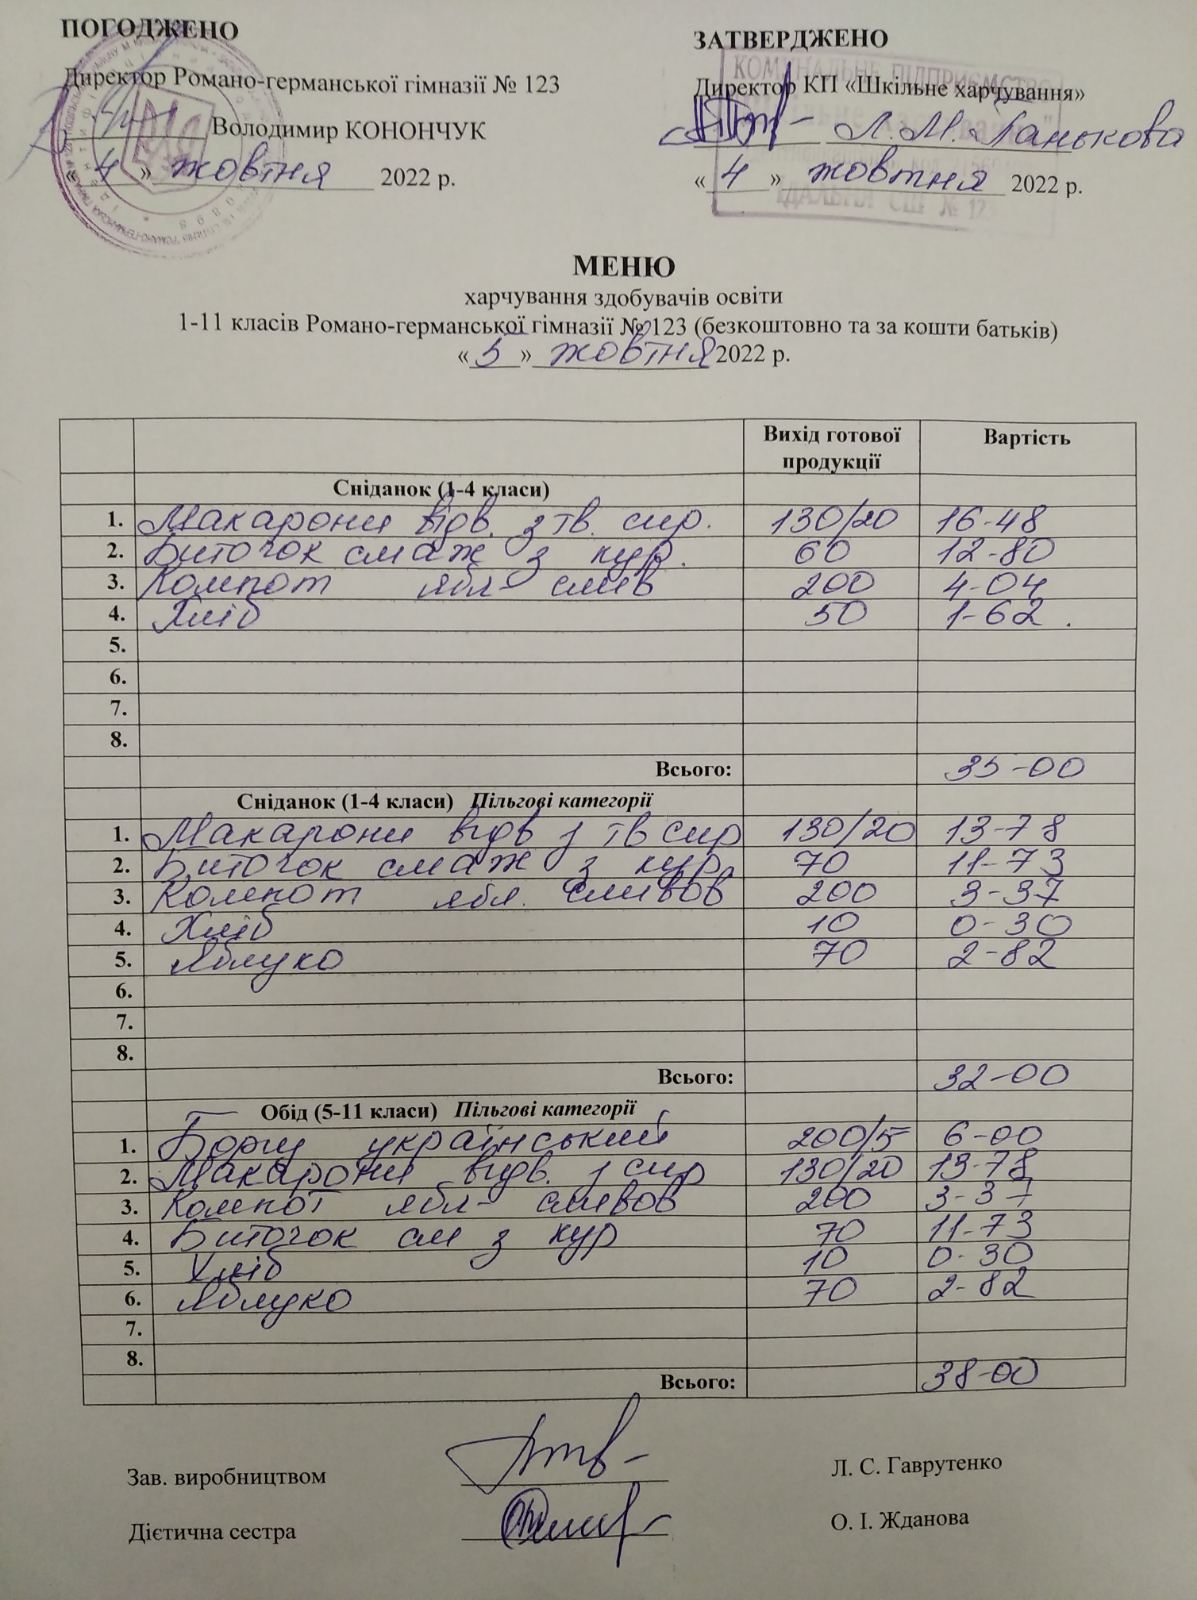 ПОГОДЖЕНО
Директор Романо-германської гімназії № 123
Володимир КОНОНЧУК
« 4 » жовтня 2022 р.
ЗАТВЕРДЖЕНО
КОМУНАЛЬНЕ ПІДПРИЄМСТВО
Директор КП «Шкільне харчування»
Л. М. Ланькова
« 4 » жовтня 2022 р.
ЇДАЛЬНЯ СШ № 123
МЕНЮ
харчування здобувачів освіти
1-11 класів Романо-германської гімназії № 123 (безкоштовно та за кошти батьків)
« 5 » жовтня 2022 р.
Вихід готової продукції Вартість
Сніданок (1-4 класи)
1. Макарони відв. з тв. сир. 130/20 16-48
2. Биточок смаж з кур. 60 12-80
3. Компот ябл- слив 200 4-04
4. Хліб 50 1-62.
5.
6.
7.
8.
Всього: 35-00
Сніданок (1-4 класи) Пільгові категорії
1. Макарони відв з тв сир 130/20 13-78
2. Биточок смаж з кур. 70 11-73
3. Компот ябл. сливов 200 3-37
4. Хліб 10 0-30
5. Яблуко 70 2-82
6.
7.
8.
Всього: 32-00
Обід (5-11 класи) Пільгові категорії
1. Борщ український 200/5 6-00
2. Макарони відв. з сир 130/20 13-78
3. Компот ябл- сливов 200 3-37
4. Биточок см з кур 70 11-73
5. Хліб 10 0-30
6. Яблуко 70 2-82
7.
8.
Всього: 38-00
Зав. виробництвом Л. С. Гаврутенко
Дієтична сестра О. І. Жданова